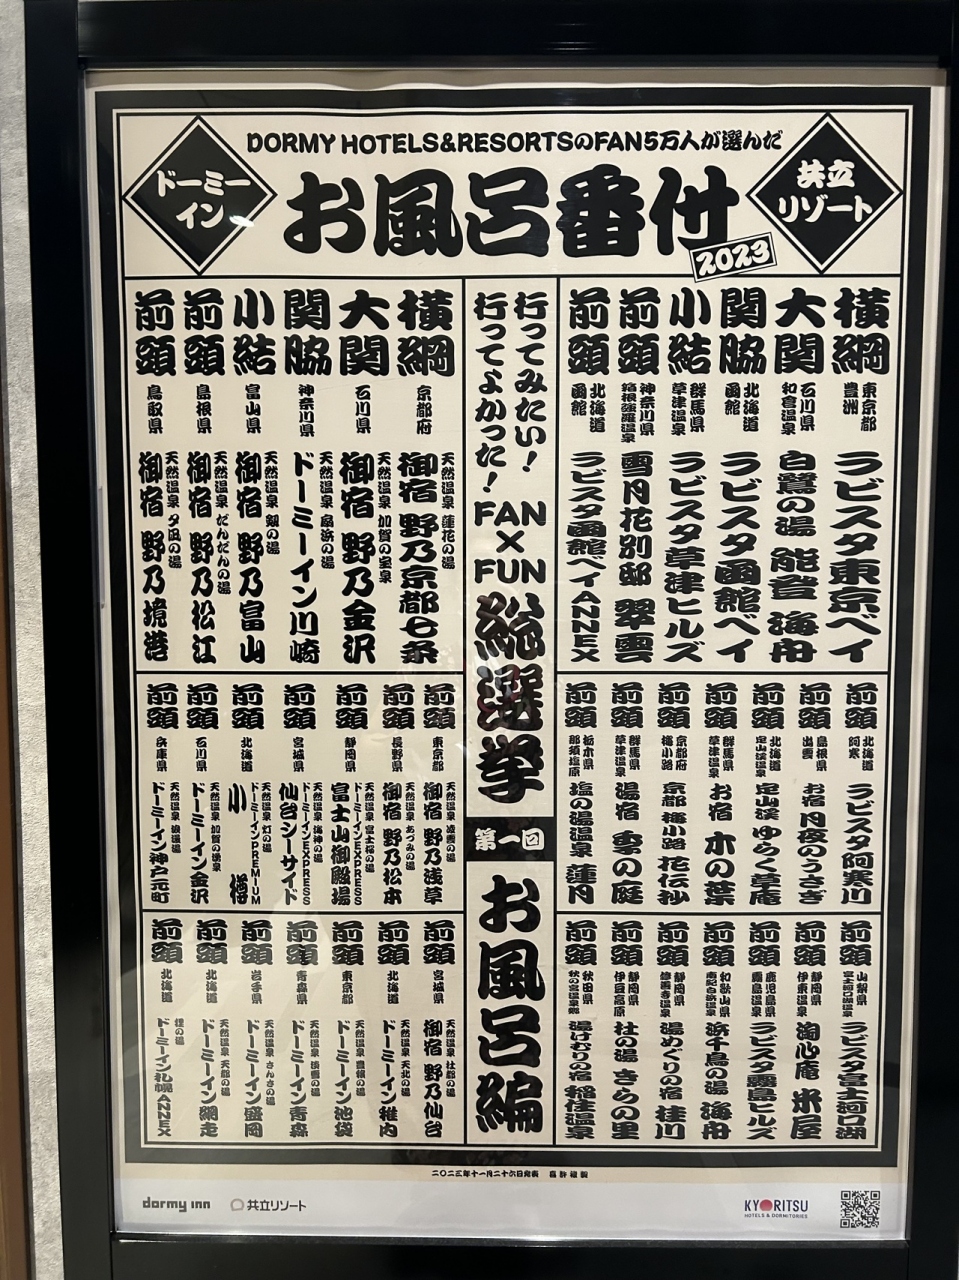 DORMY HOTELS&RESORTSのFAN5万人が選んだ
お風呂番付
2023
ドーミーイン
共立リゾート
横綱 東京都 豊洲 ラビスタ東京ベイ
大関 石川県 和倉温泉 白鷺の湯 能登 海舟
関脇 北海道 函館 ラビスタ函館ベイ
小結 群馬県 草津温泉 ラビスタ草津ヒルズ
前頭 神奈川県 箱根強羅温泉 雪月花別邸 翠雲
前頭 北海道 函館 ラビスタ函館ベイANNEX
前頭 北海道 阿寒 ラビスタ阿寒川
前頭 島根県 出雲 お宿 月夜のうさぎ
前頭 北海道 定山渓温泉 定山渓 ゆらく草庵
前頭 群馬県 草津温泉 お宿 木の葉
前頭 京都府 梅小路 京都 梅小路 花伝抄
前頭 群馬県 草津温泉 湯宿 季の庭
前頭 栃木県 那須塩原 塩の湯温泉 蓮月
前頭 山梨県 富士河口湖温泉 ラビスタ富士河口湖
前頭 静岡県 伊東温泉 淘心庵 米屋
前頭 鹿児島県 霧島温泉 ラビスタ霧島ヒルズ
前頭 和歌山県 南紀白浜温泉 浜千鳥の湯 海舟
前頭 静岡県 修善寺温泉 湯めぐりの宿 桂川
前頭 静岡県 伊豆高原 杜の湯 きらの里
前頭 秋田県 秋の宮温泉郷 湯けむりの宿 稲住温泉
行ってみたい!
行ってよかった!
FAN
×
FUN
総選挙
第一回
お風呂編
横綱 京都府 天然温泉 蓮花の湯 御宿 野乃京都七条
大関 石川県 天然温泉 加賀の宝泉 御宿 野乃金沢
関脇 神奈川県 天然温泉 扇浜の湯 ドーミーイン川崎
小結 富山県 天然温泉 剱の湯 御宿 野乃富山
前頭 島根県 天然温泉 だんだんの湯 御宿 野乃松江
前頭 鳥取県 天然温泉 夕凪の湯 御宿 野乃境港
前頭 東京都 天然温泉 凌雲の湯 御宿 野乃浅草
前頭 長野県 天然温泉 あづみの湯 御宿 野乃松本
前頭 静岡県 天然温泉 富士桜の湯 ドーミーインEXPRESS 富士山御殿場
前頭 宮城県 天然温泉 海神の湯 ドーミーインEXPRESS 仙台シーサイド
前頭 北海道 天然温泉 灯の湯 ドーミーインPREMIUM 小樽
前頭 石川県 天然温泉 加賀の湧泉 ドーミーイン金沢
前頭 兵庫県 天然温泉 浪漫湯 ドーミーイン神戸元町
前頭 宮城県 天然温泉 杜都の湯 御宿 野乃仙台
前頭 北海道 天然温泉 天北の湯 ドーミーイン稚内
前頭 東京都 天然温泉 豊穣の湯 ドーミーイン池袋
前頭 青森県 天然温泉 淡雪の湯 ドーミーイン青森
前頭 岩手県 天然温泉 さんさの湯 ドーミーイン盛岡
前頭 北海道 天然温泉 天都の湯 ドーミーイン網走
前頭 北海道 狸の湯 ドーミーイン札幌ANNEX
二〇二三年十一月二十六日発表
dormy inn
共立リゾート
KYORITSU
HOTELS & DORMITORIES